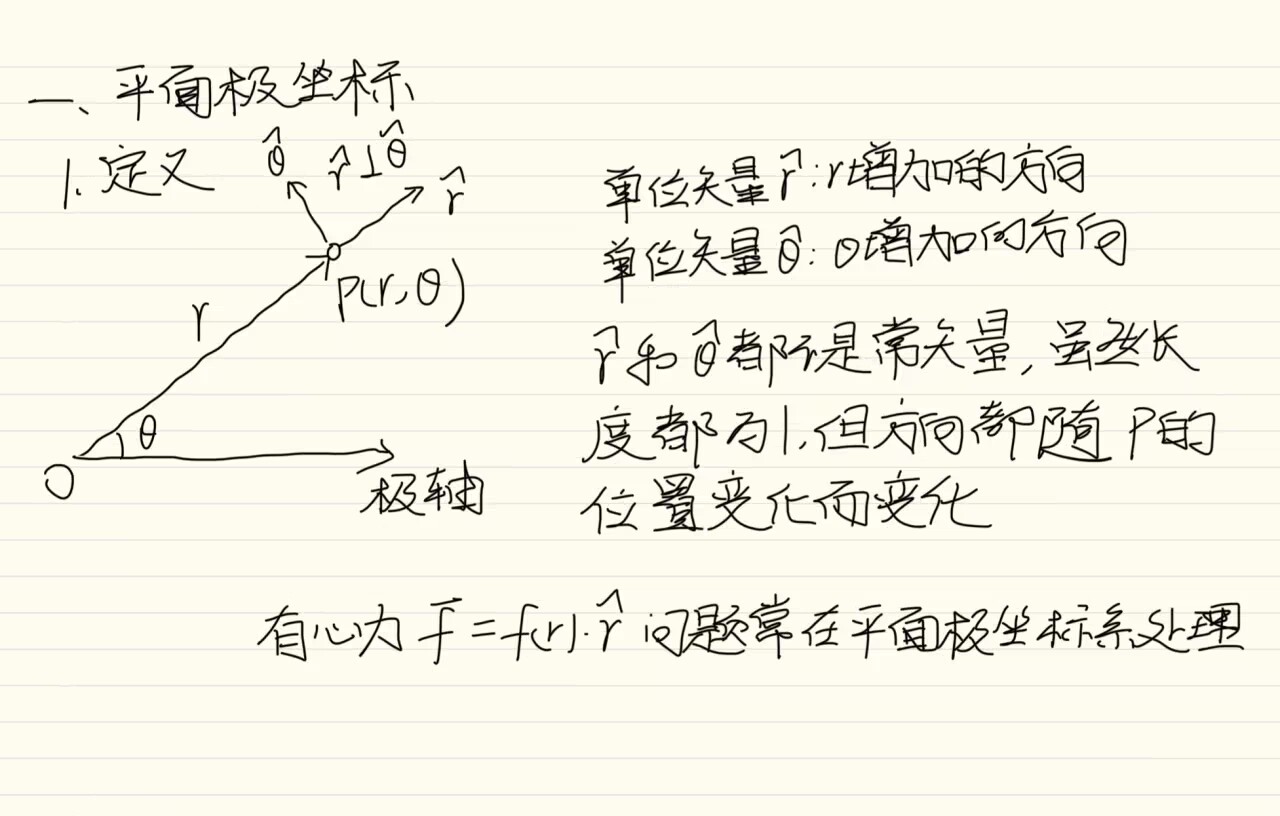 一、平面极坐标
1. 定义
θ̂
r̂⊥θ̂
r̂
P(r,θ)
r
θ
O
极轴
单位矢量r̂:r增加的方向
单位矢量θ̂:θ增加的方向
r̂和θ̂都不是常矢量,虽然长
度都为1,但方向都随P的
位置变化而变化
有心力 F̄=f(r)·r̂ 问题常在平面极坐标系处理